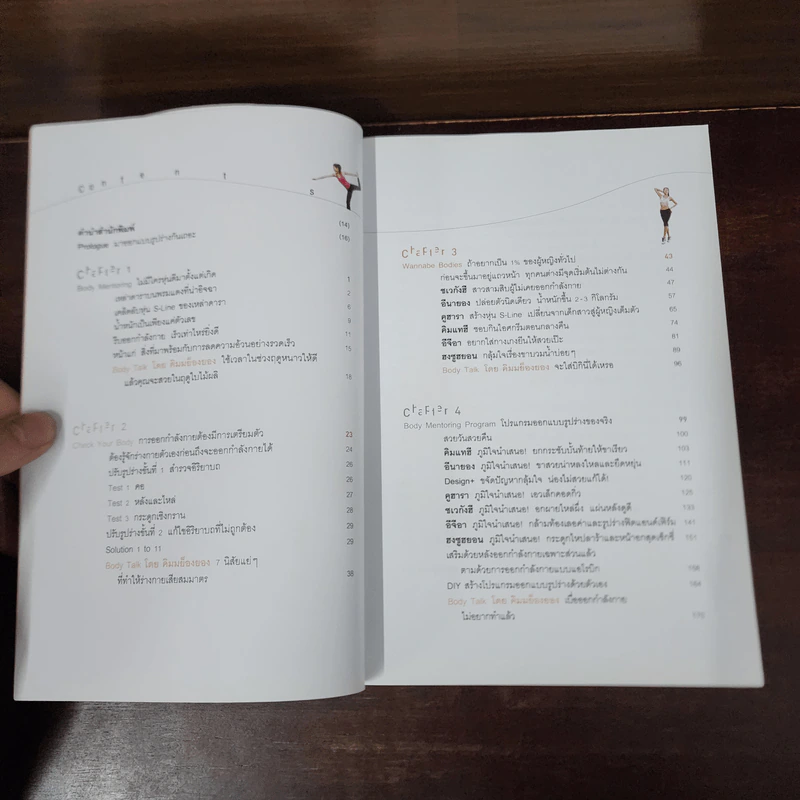 Contents
คำนำสำนักพิมพ์ (14)
Prologue มาออกแบบรูปร่างกันเถอะ (16)
Chapter 1
Body Mentoring ไม่มีใครหุ่นดีมาตั้งแต่เกิด 1
เหล่าดาราบนพรมแดงที่น่าอิจฉา 2
เคล็ดลับหุ่น S-Line ของเหล่าดารา
น้ำหนักเป็นเพียงแค่ตัวเลข
รีบออกกำลังกาย เร็วเท่าไหร่ยิ่งดี 11
หน้าแก่ สิ่งที่มาพร้อมกับการลดความอ้วนอย่างรวดเร็ว 15
Body Talk โดย คิมมย็องยอง ใช้เวลาในช่วงฤดูหนาวให้ดี
แล้วคุณจะสวยในฤดูใบไม้ผลิ 18
Chapter 2
Check Your Body การออกกำลังกายต้องมีการเตรียมตัว 23
ต้องรู้จักร่างกายตัวเองก่อนถึงจะออกกำลังกายได้ 24
ปรับรูปร่างขั้นที่ 1 สำรวจอิริยาบถ 26
Test 1 คอ 26
Test 2 หลังและไหล่ 27
Test 3 กระดูกเชิงกราน 28
ปรับรูปร่างขั้นที่ 2 แก้ไขอิริยาบถที่ไม่ถูกต้อง 29
Solution 1 to 11 29
Body Talk โดย คิมมย็องยอง 7 นิสัยแย่ๆ
ที่ทำให้ร่างกายเสียสมมาตร 38
Chapter 3
Wannabe Bodies ถ้าอยากเป็น 1% ของผู้หญิงทั่วไป 43
ก่อนจะขึ้นมาอยู่แถวหน้า ทุกคนต่างมีจุดเริ่มต้นไม่ต่างกัน 44
ชเวกังฮี สาวสามสิบผู้ไม่เคยออกกำลังกาย 47
อีนายอง ปล่อยตัวนิดเดียว น้ำหนักขึ้น 2-3 กิโลกรัม 57
คูฮารา สร้างหุ่น S-Line เปลี่ยนจากเด็กสาวสู่ผู้หญิงเต็มตัว 65
คิมแทฮี ชอบกินไอศกรีมตอนกลางคืน 74
อีจีอา อยากใส่กางเกงยีนให้สวยเป๊ะ 81
ฮงซูฮยอน กลุ้มใจเรื่องขาบวมน้ำบ่อยๆ 89
Body Talk โดย คิมมย็องยอง จะใส่บิกินีได้เหรอ 96
Chapter 4
Body Mentoring Program โปรแกรมออกแบบรูปร่างของจริง 99
สวยวันสวยคืน 100
คิมแทฮี ภูมิใจนำเสนอ! ยกกระชับบั้นท้ายให้ขาเรียว 103
อีนายอง ภูมิใจนำเสนอ! ขาสวยน่าหลงใหลและยืดหยุ่น 111
Design+ ขจัดปัญหากลุ้มใจ น่องไม่สวยแก้ได้! 120
คูฮารา ภูมิใจนำเสนอ! เอวเล็กคอดกิ่ว 125
ชเวกังฮี ภูมิใจนำเสนอ! อกผายไหล่ผึ่ง แผ่นหลังดูดี 133
อีจีอา ภูมิใจนำเสนอ! กล้ามท้องเลอค่าและรูปร่างฟิตแอนด์เฟิร์ม 141
ฮงซูฮยอน ภูมิใจนำเสนอ! กระดูกไหปลาร้าและหน้าอกสุดเซ็กซี่ 151
เสริมด้วยหลังออกกำลังกายเฉพาะส่วนแล้ว
ตามด้วยการออกกำลังกายแบบแอโรบิก 158
DIY สร้างโปรแกรมออกแบบรูปร่างด้วยตัวเอง 164
Body Talk โดย คิมมย็องยอง เมื่อออกกำลังกาย
ไม่อยากทำแล้ว